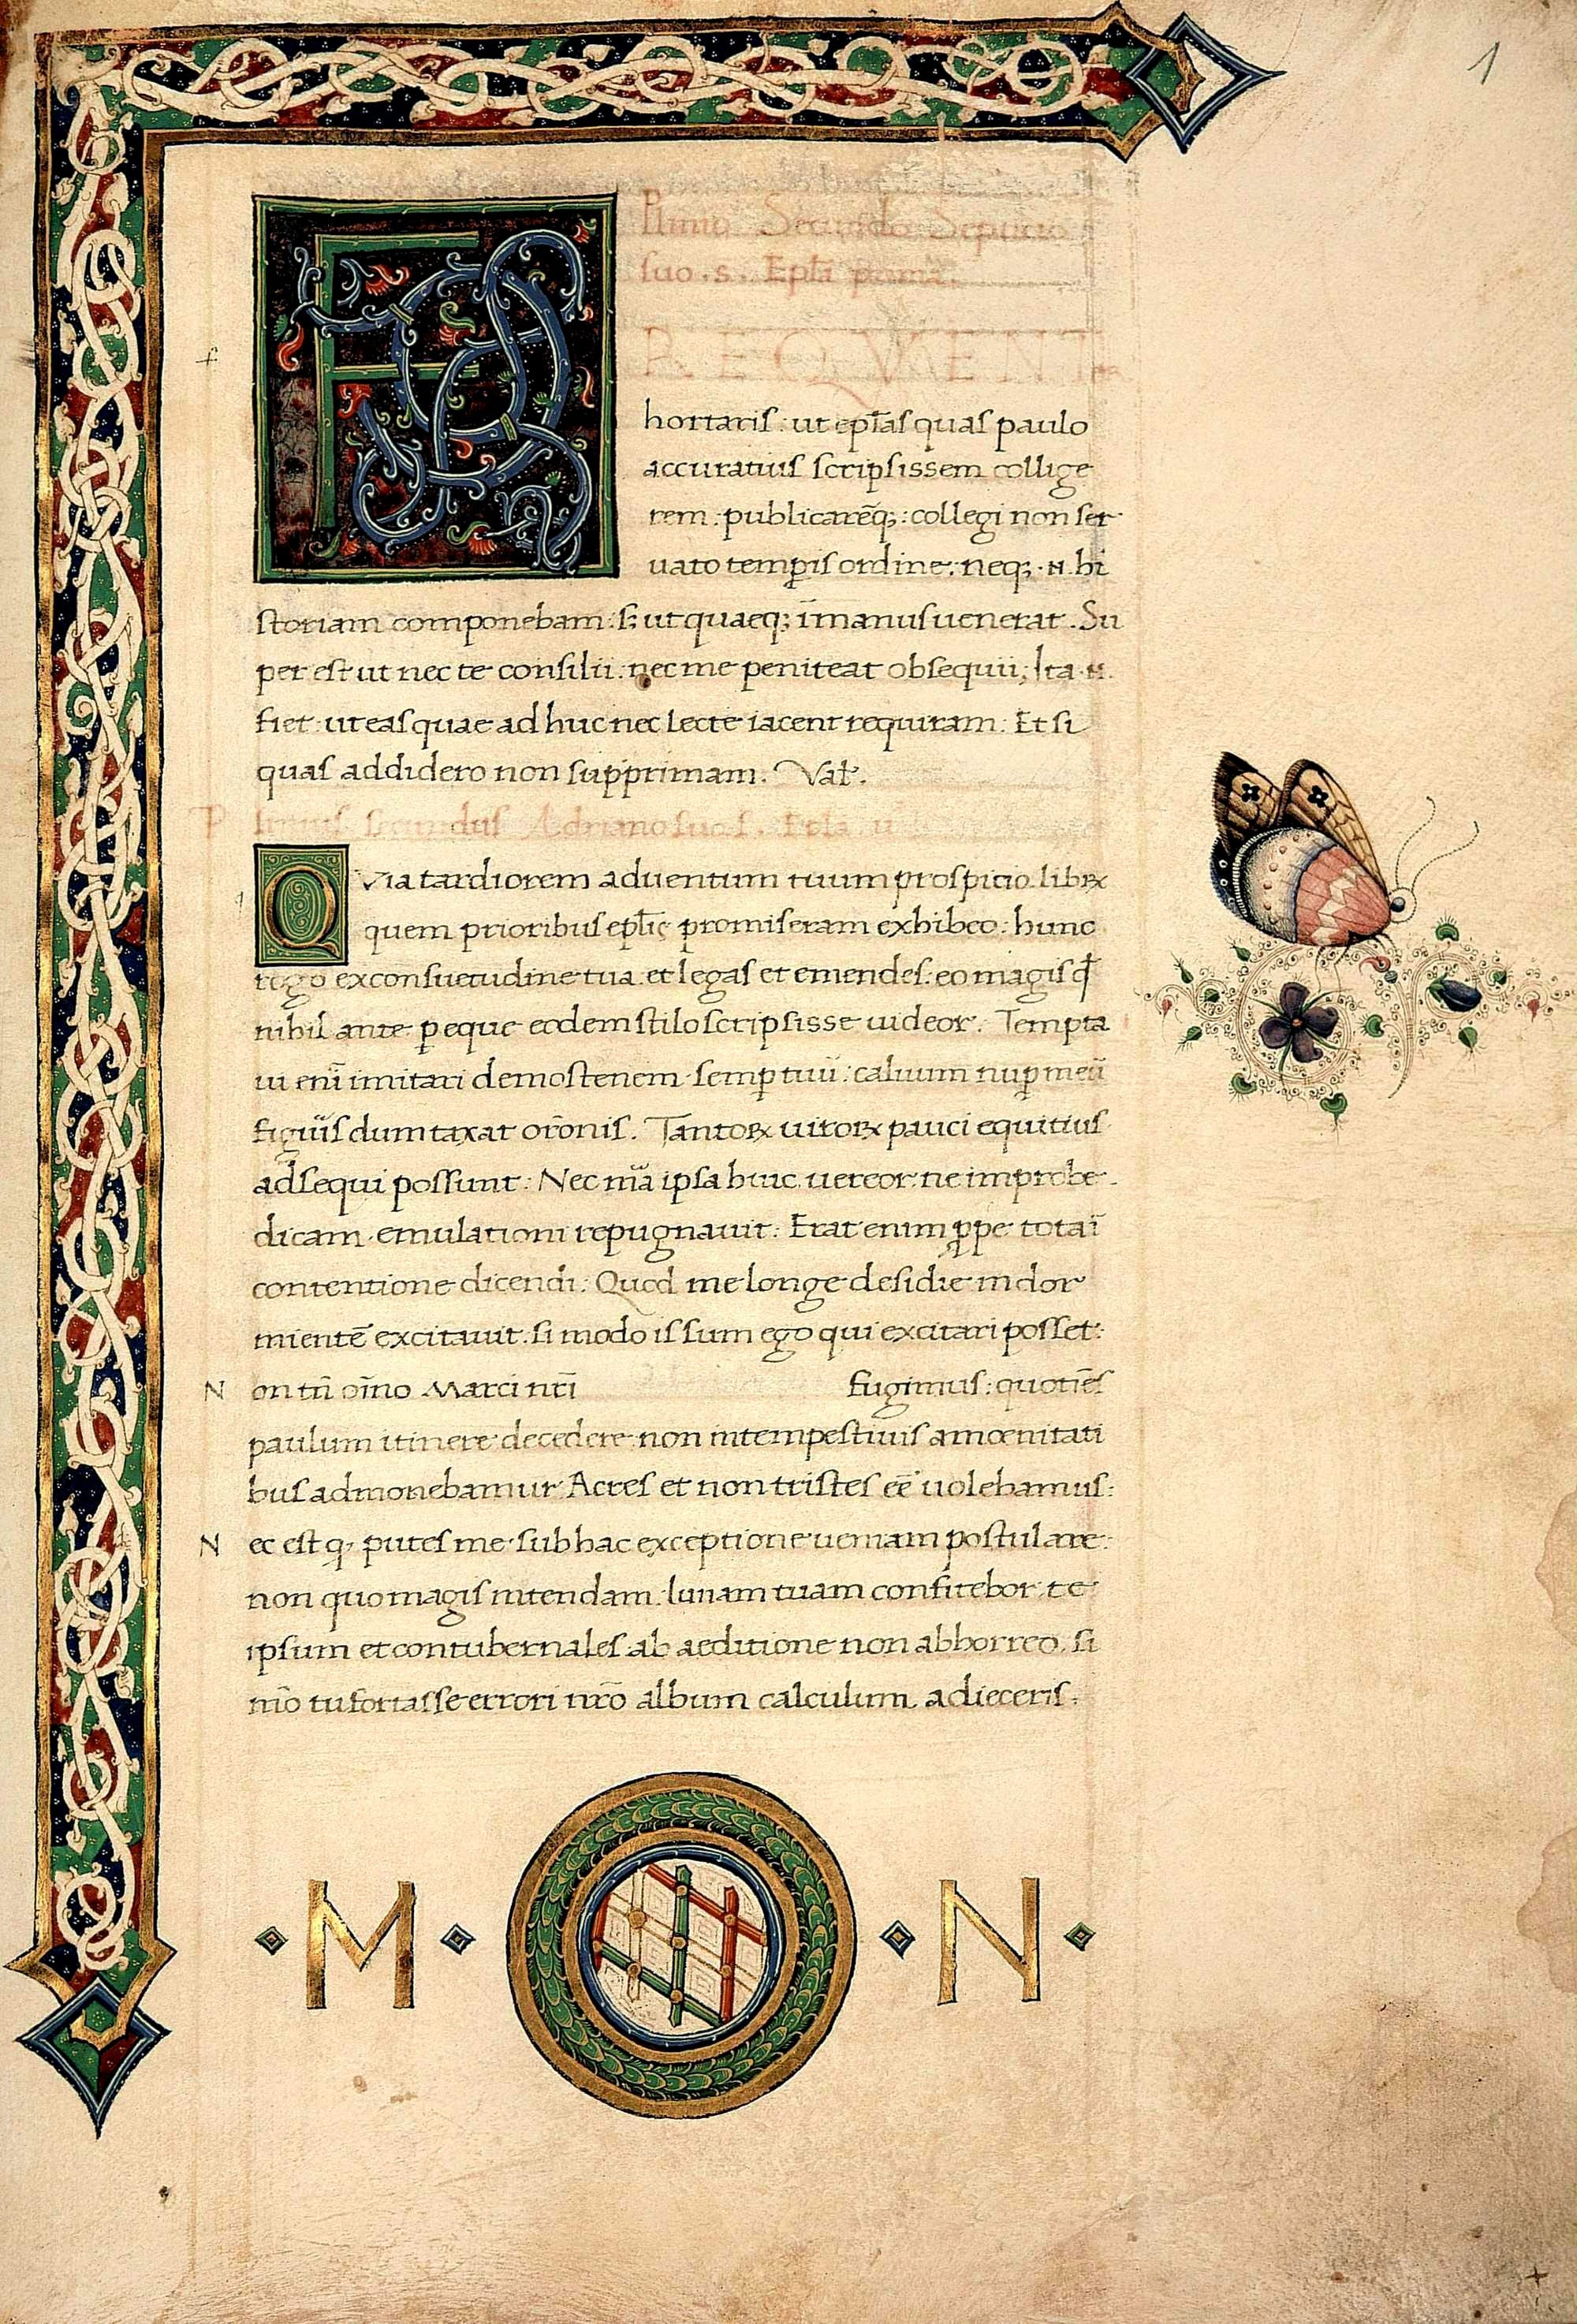 1
Plinius Secundus Septicio
suo . s . Epl̄a prima .
F R E Q V E N T
hortaris : ut epl̄as quas paulo
accuratius scripsissem collige
rem : publicarēq; : collegi non ser
uato temꝑis ordine : neq; · n · hi
storiam componebam : s; ut quaeq; ī manus uenerat . Su
per est ut nec te consilii : nec me peniteat obsequii ; Ita · n ·
fiet : ut eas quae ad huc nec lecte iacent requiram : Et si
quas addidero non supprimam . Val̄ .
P linius secundus Adriano suo s . Epl̄a ii
Q Via tardiorem aduentum tuum prospicio librꝝ
quem prioribus epl̄is promiseram exhibeo : hunc
rogo ex consuetudine tua et legas et emendes : eo magis ꝙ
nihil ante ꝑ eque eodem stilo scripsisse uideor . Tempta
ui enī imitari demostenem semꝑ tuū : caluum nuꝑ meū
figuris dum taxat orōnis . Tantoꝝ uiroꝝ pauci equitius
adsequi possunt : Nec māa ipsa huic uereor ne improbe
dicam emulationi repugnauit : Erat enim ꝓpe tota ī
contentione dicendi : Quod me longe desidie indor
mientē excitauit . si modo is sum ego qui excitari posset :
N on tn̄ oīno Marci nr̄i Fugimus : quotiēs
paulum itinere decedere non intempestiuis amoenitati
bus admonebamur Acres et non tristes eē uolebamus :
N ec est q; putes me sub hac exceptione ueniam postulare :
non quo magis intendam . limam tuam confitebor te
ipsum et contubernales ab aeditione non abhorreo . si
mō tu fortasse errori nr̄o album calculum adieceris .
· M · · N ·